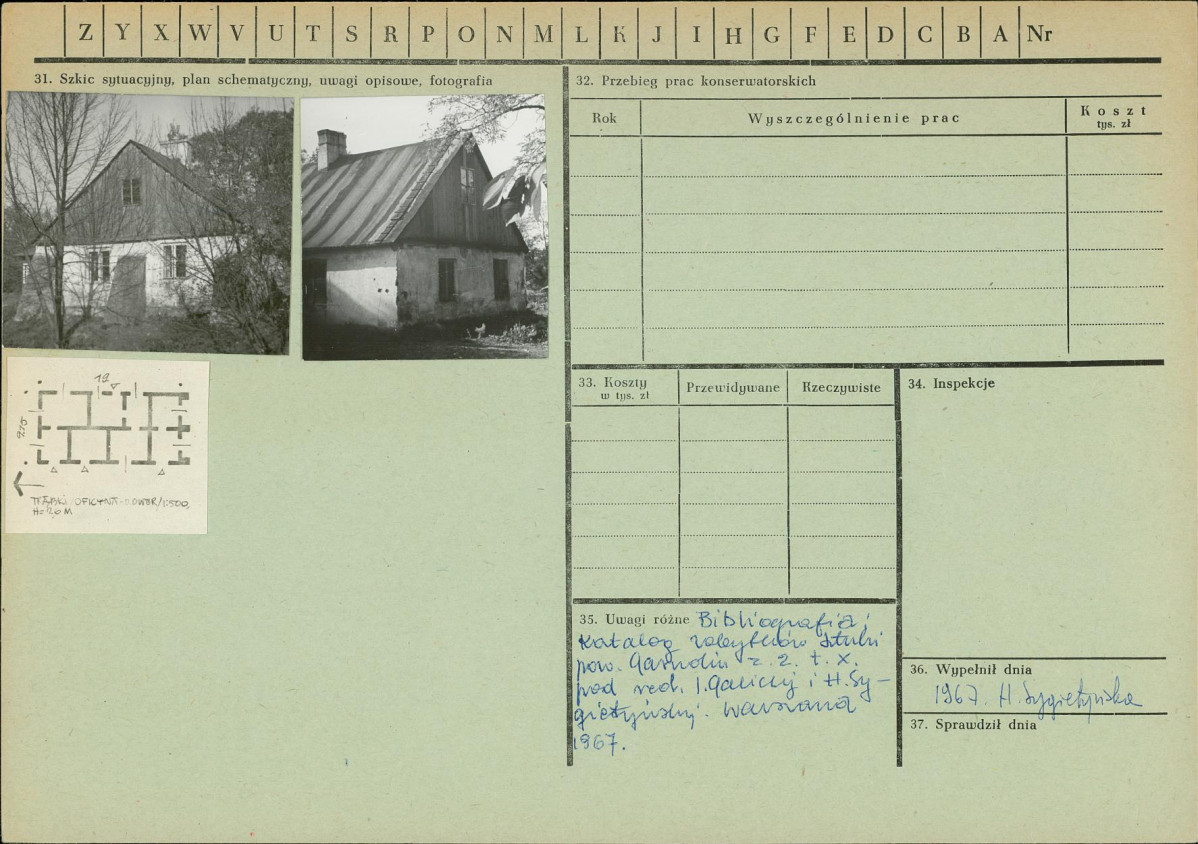 Z Y X W V U T S R P O N M L K J I H G F E D C B A Nr
31. Szkic sytuacyjny, plan schematyczny, uwagi opisowe, fotografia
19
215
TRĄBKI/OFICYNA-DWÓR/1:500,
H= 2,6 M
32. Przebieg prac konserwatorskich
Rok
Wyszczególnienie prac
Koszt
tys. zł
33. Koszty
w tys. zł
Przewidywane
Rzeczywiste
34. Inspekcje
35. Uwagi różne Bibliografia:
Katalog zabytków sztuki
pow. Garwolin z. 2. t. X.
pod red. I. Galickiej i H. Sy-
gietyńskiej. Warszawa
1967.
36. Wypełnił dnia
1967. H. Sygietyńska
37. Sprawdził dnia